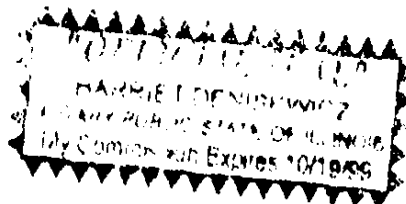 HARRIET DENISEWICZ
NOTARY PUBLIC STATE OF ILLINOIS
My Commission Expires 10/19/99